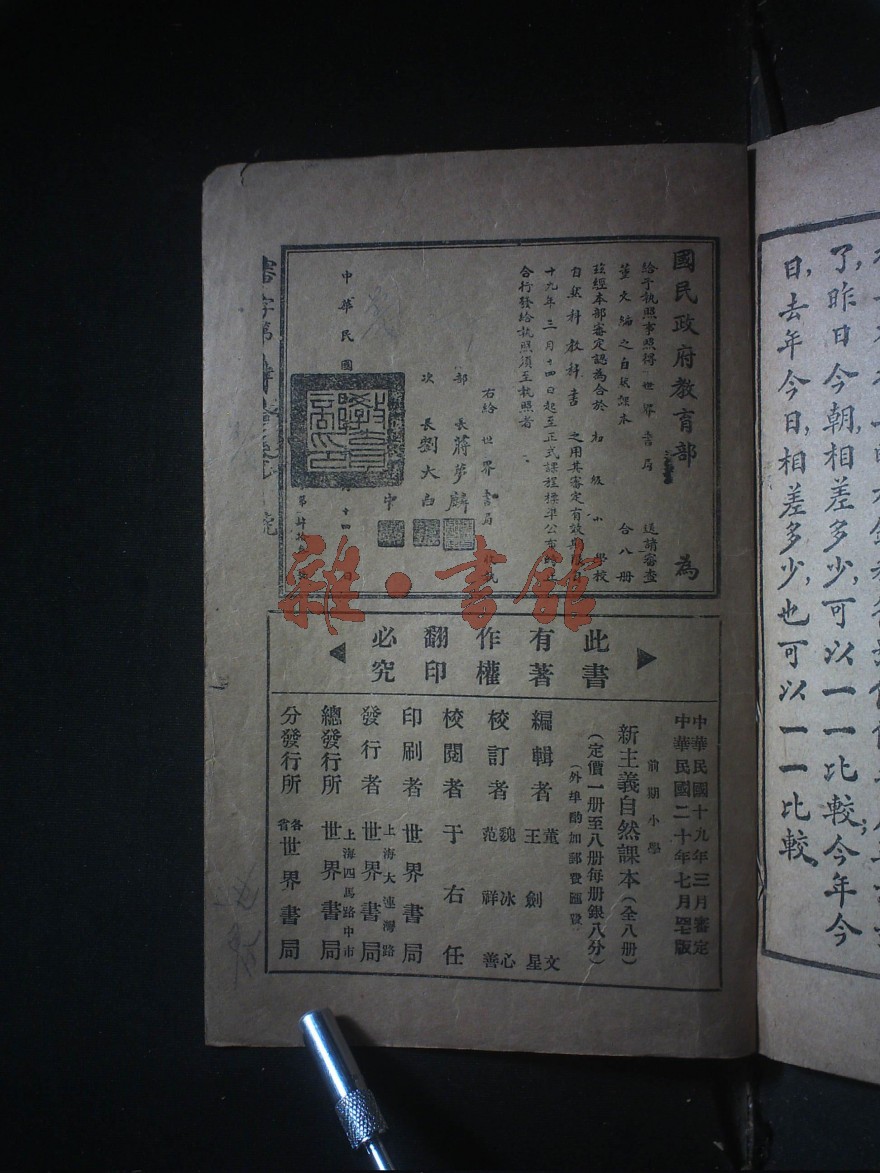 國民政府教育部 為
給予執照事照得 世界書局 送請審查
董文編之自然課本 合八册
茲經本部審定認為合於 初級小學校
自然科教科書 之用其審定有效期限自
十九年三月十四日起至正式課程標準公布時止
合行發給執照須至執照者
右給世界書局 執
部長蔣夢麟
次長劉大白
中華民國
此書
有著
作權
翻印
必究
中華民國十九年三月審定
中華民國二十年七月 版
前期小學
新主義自然課本(全八册)
(定價一册至八册每册銀八分)
(外埠酌加郵費匯費)
編輯者 董文 王劍星
校訂者 魏冰心 范祥善
校閱者 于右任
印刷者 世界書局
發行者 上海大連灣路 世界書局
總發行所 上海四馬路中市 世界書局
分發行所 各省 世界書局
雜·書館
了,昨日今朝,相差多少,可以一一比較;今年今
日,去年今日,相差多少,也可以一一比較